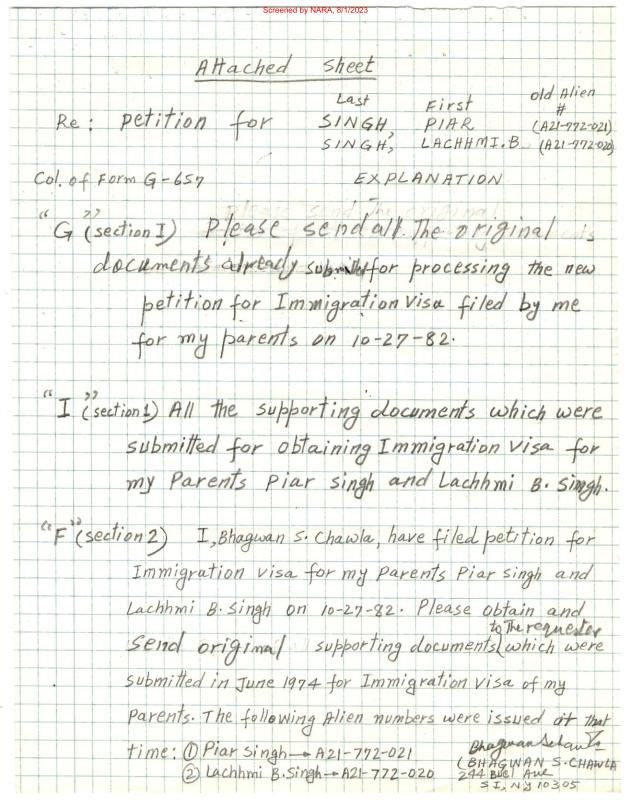 Screened by NARA, 8/1/2023
Attached sheet
Last First old Alien #
Re: petition for SINGH, PIAR (A21-772-021)
SINGH, LACHHMI.B (A21-772-020)
Col. of Form G-657 EXPLANATION
"G" (section I) Please send all. The original
documents already submitted for processing the new
petition for Immigration Visa filed by me
for my parents on 10-27-82.
"I" (section 1) All the supporting documents which were
submitted for obtaining Immigration Visa for
my Parents Piar Singh and Lachhmi B. Singh.
"F" (section 2) I, Bhagwan S. Chawla, have filed petition for
Immigration visa for my Parents Piar Singh and
Lachhmi B. Singh on 10-27-82. Please obtain and
to the requester
send original supporting documents which were
submitted in June 1974 for Immigration Visa of my
Parents. The following Alien numbers were issued at that
time: ① Piar Singh → A21-772-021
(BHAGWAN S. CHAWLA
② Lachhmi B. Singh → A21-772-020
244 Ave
S I, NY 10305